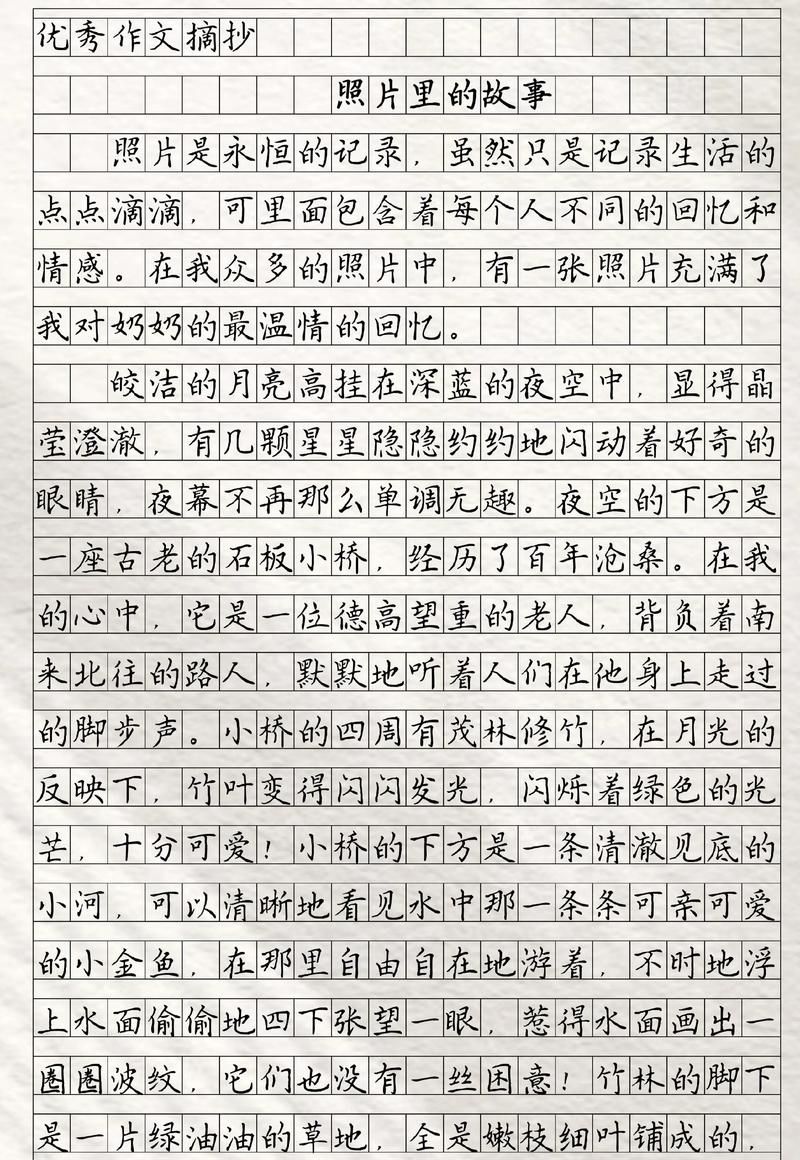 优秀作文摘抄
照片里的故事
照片是永恒的记录，虽然只是记录生活的
点点滴滴，可里面包含着每个人不同的回忆和
情感。在我众多的照片中，有一张照片充满了
我对奶奶的最温情的回忆。
皎洁的月亮高挂在深蓝的夜空中，显得晶
莹澄澈，有几颗星星隐隐约约地闪动着好奇的
眼睛，夜幕不再那么单调无趣。夜空的下方是
一座古老的石板小桥，经历了百年沧桑。在我
的心中，它是一位德高望重的老人，背负着南
来北往的路人，默默地听着人们在他身上走过
的脚步声。小桥的四周有茂林修竹，在月光的
反映下，竹叶变得闪闪发光，闪烁着绿色的光
芒，十分可爱！小桥的下方是一条清澈见底的
小河，可以清晰地看见水中那一条条可亲可爱
的小金鱼，在那里自由自在地游着，不时地浮
上水面偷偷地四下张望一眼，惹得水面画出一
圈圈波纹，它们也没有一丝困意！竹林的脚下
是一片绿油油的草地，全是嫩枝细叶铺成的，